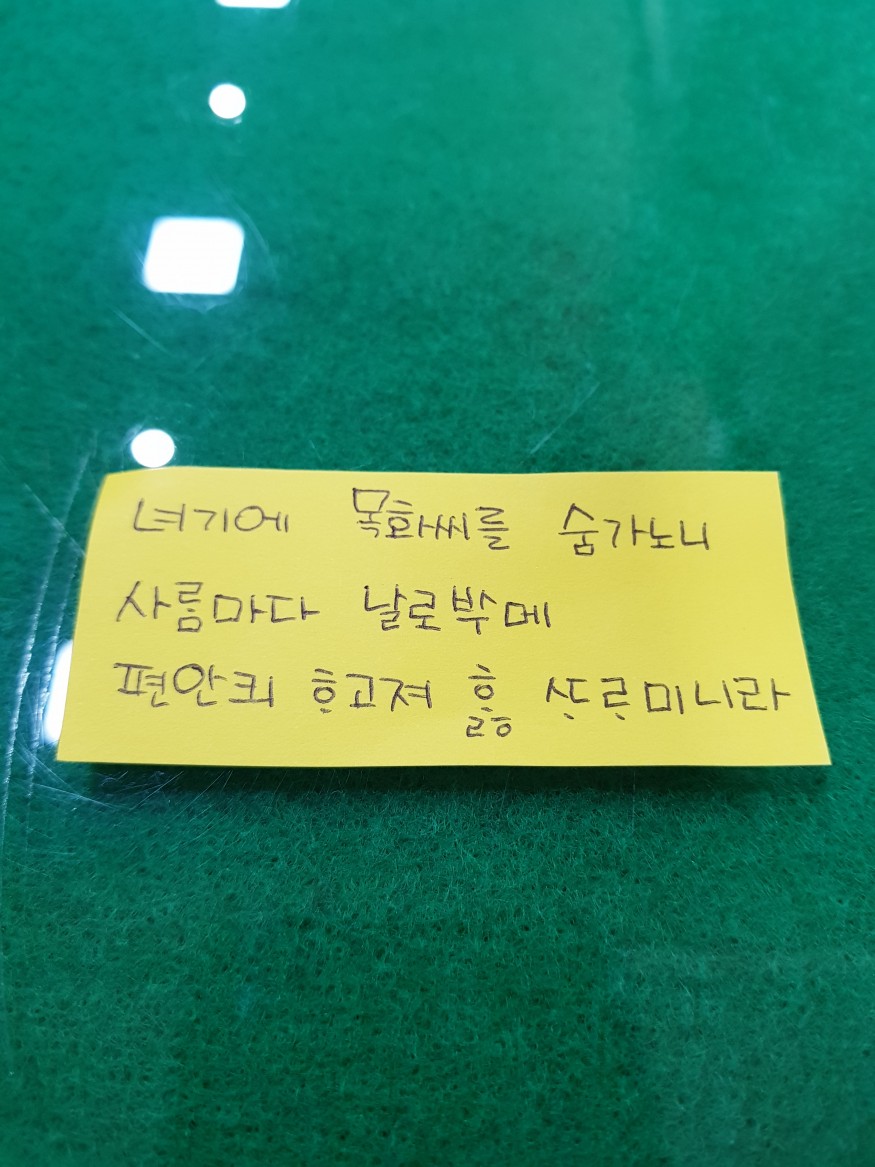 녀기에 목화씨를 숨가노니
사름마다 날로ᄡᅮ메
편안킈 ᄒᆞ고져 ᄒᆞᇙ ᄯᆞᄅᆞ미니라